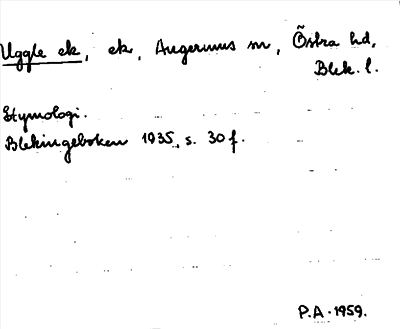 Uggle ek, ek, Augerums sn, Östra hd,
Blek. l.
Etymologi.
Blekingeboken 1935, s. 30 f.
P.A. 1959.